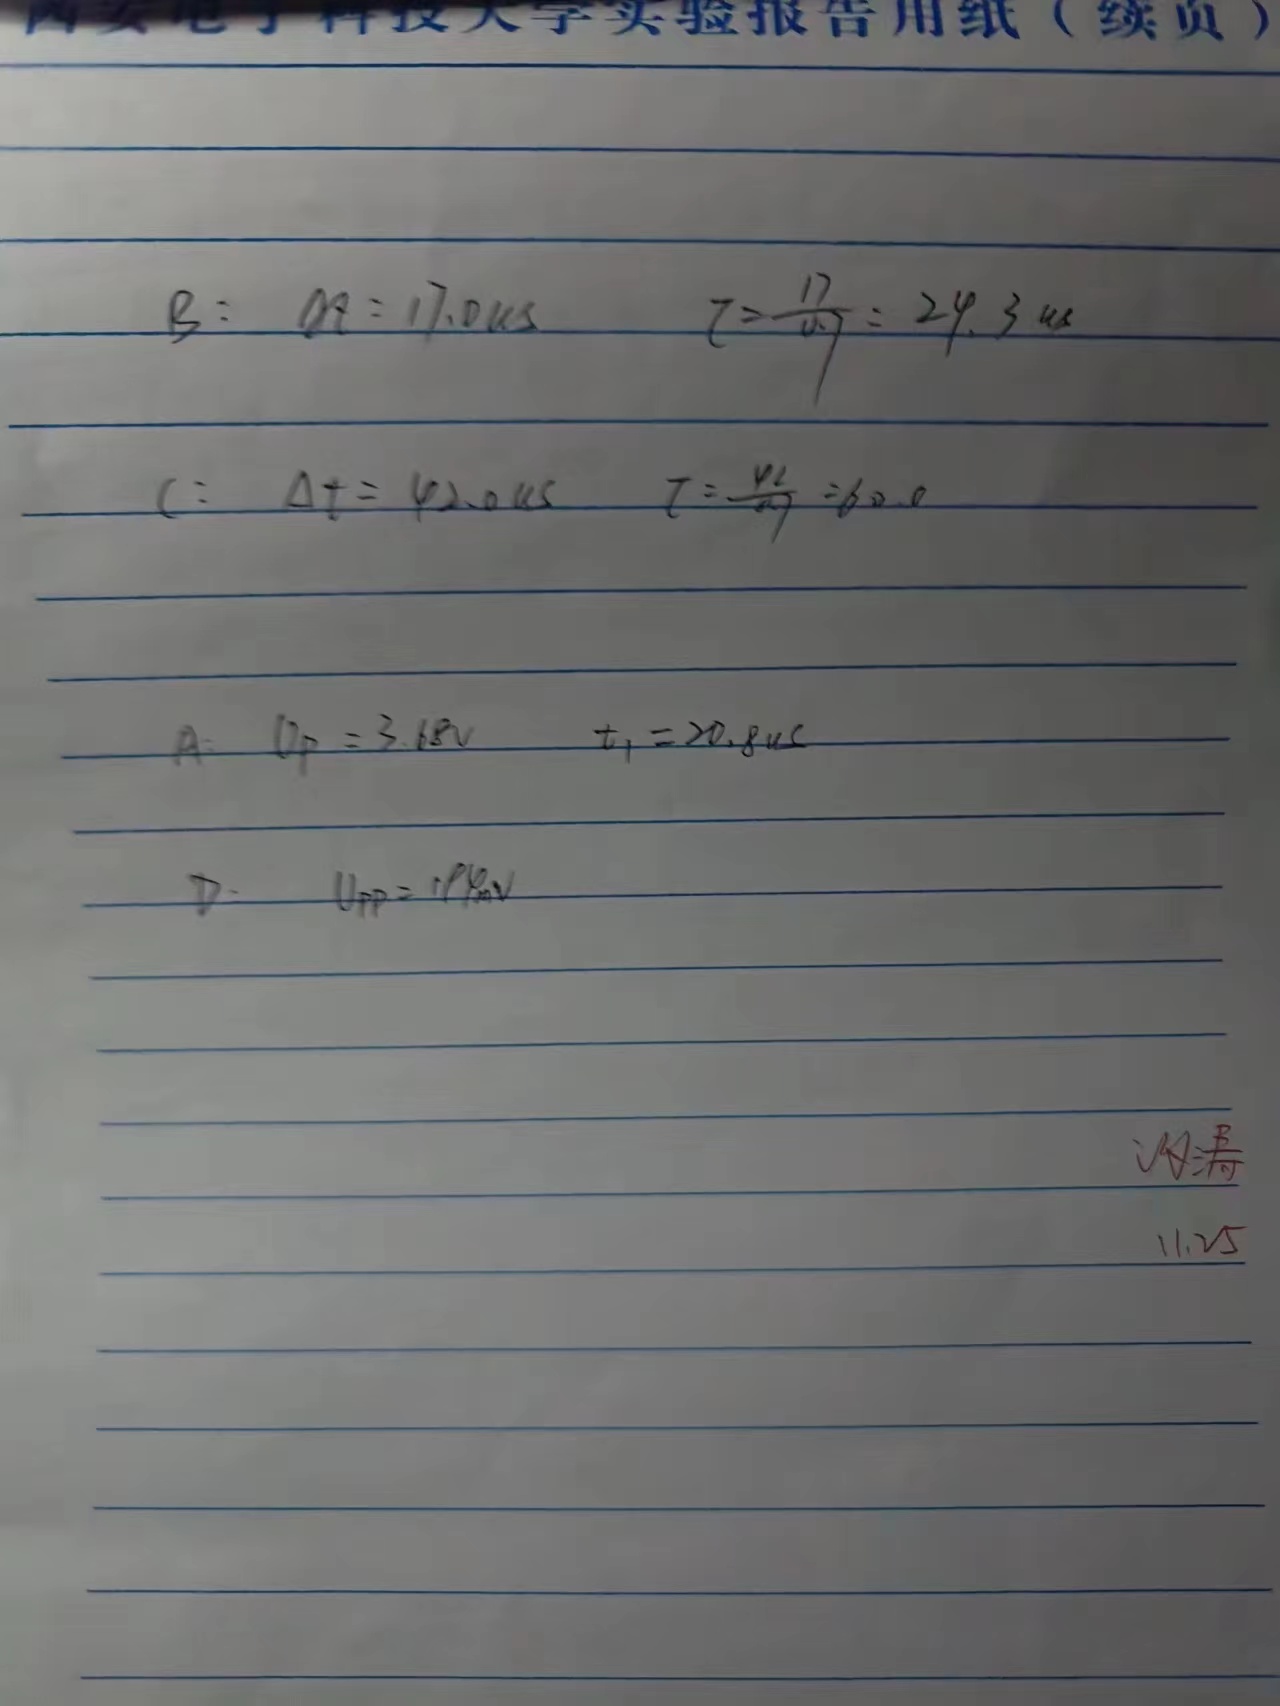 西安电子科技大学实验报告用纸（续页）
B: Δt = 17.0us τ = 17/0.7 = 24.3 us
C: Δt = 42.0us τ = 42/0.7 = 60.0
A: Up = 3.68v t₁ = 20.8us
D: Upp = mV
涛
11.25